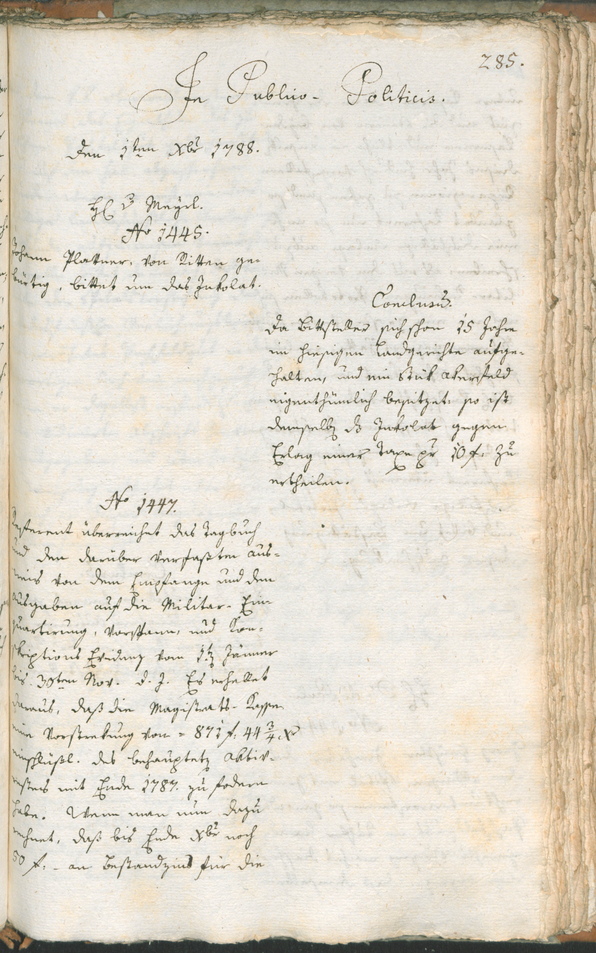 285.
In Publico-Politicis.
Den 1ten Xbr 1788.
H. v Mayrl.
No 1445.
Johann Platner, von Ritten ge-
bürtig, bittet um das Inkolat.
Conclusum.
Da Bittsteller sich schon 15 Jahre
im hiesigen Landgerichte aufge-
halten, und ein Stük Akerfeld
eigenthümlich besitzet, so ist
demselben das Inkolat gegen
Erlag einer Taxe pr 10 f. zu
ertheilen.
No 1447.
Referent überreichet das Tagbuch
und den darüber verfaßten Aus-
weis von dem Empfange und den
Ausgaben auf die Militar-Ein-
quartirung, Vorspann, und Kon-
skriptions Fundum vom 1ten Jänner
bis 30ten Nov. d. J. Es erhellet
daraus, daß die Magistrats-Kasse
eine Vorstrekung von = 871 f: 44 3/4 x
einschlüßl. des behaupteten Aktiv-
restes mit Ende 1787 zu fodern
habe. Wenn man nun dazu
rechnet, daß bis Ende Xbr noch
50 f: - an Bestandzins für die